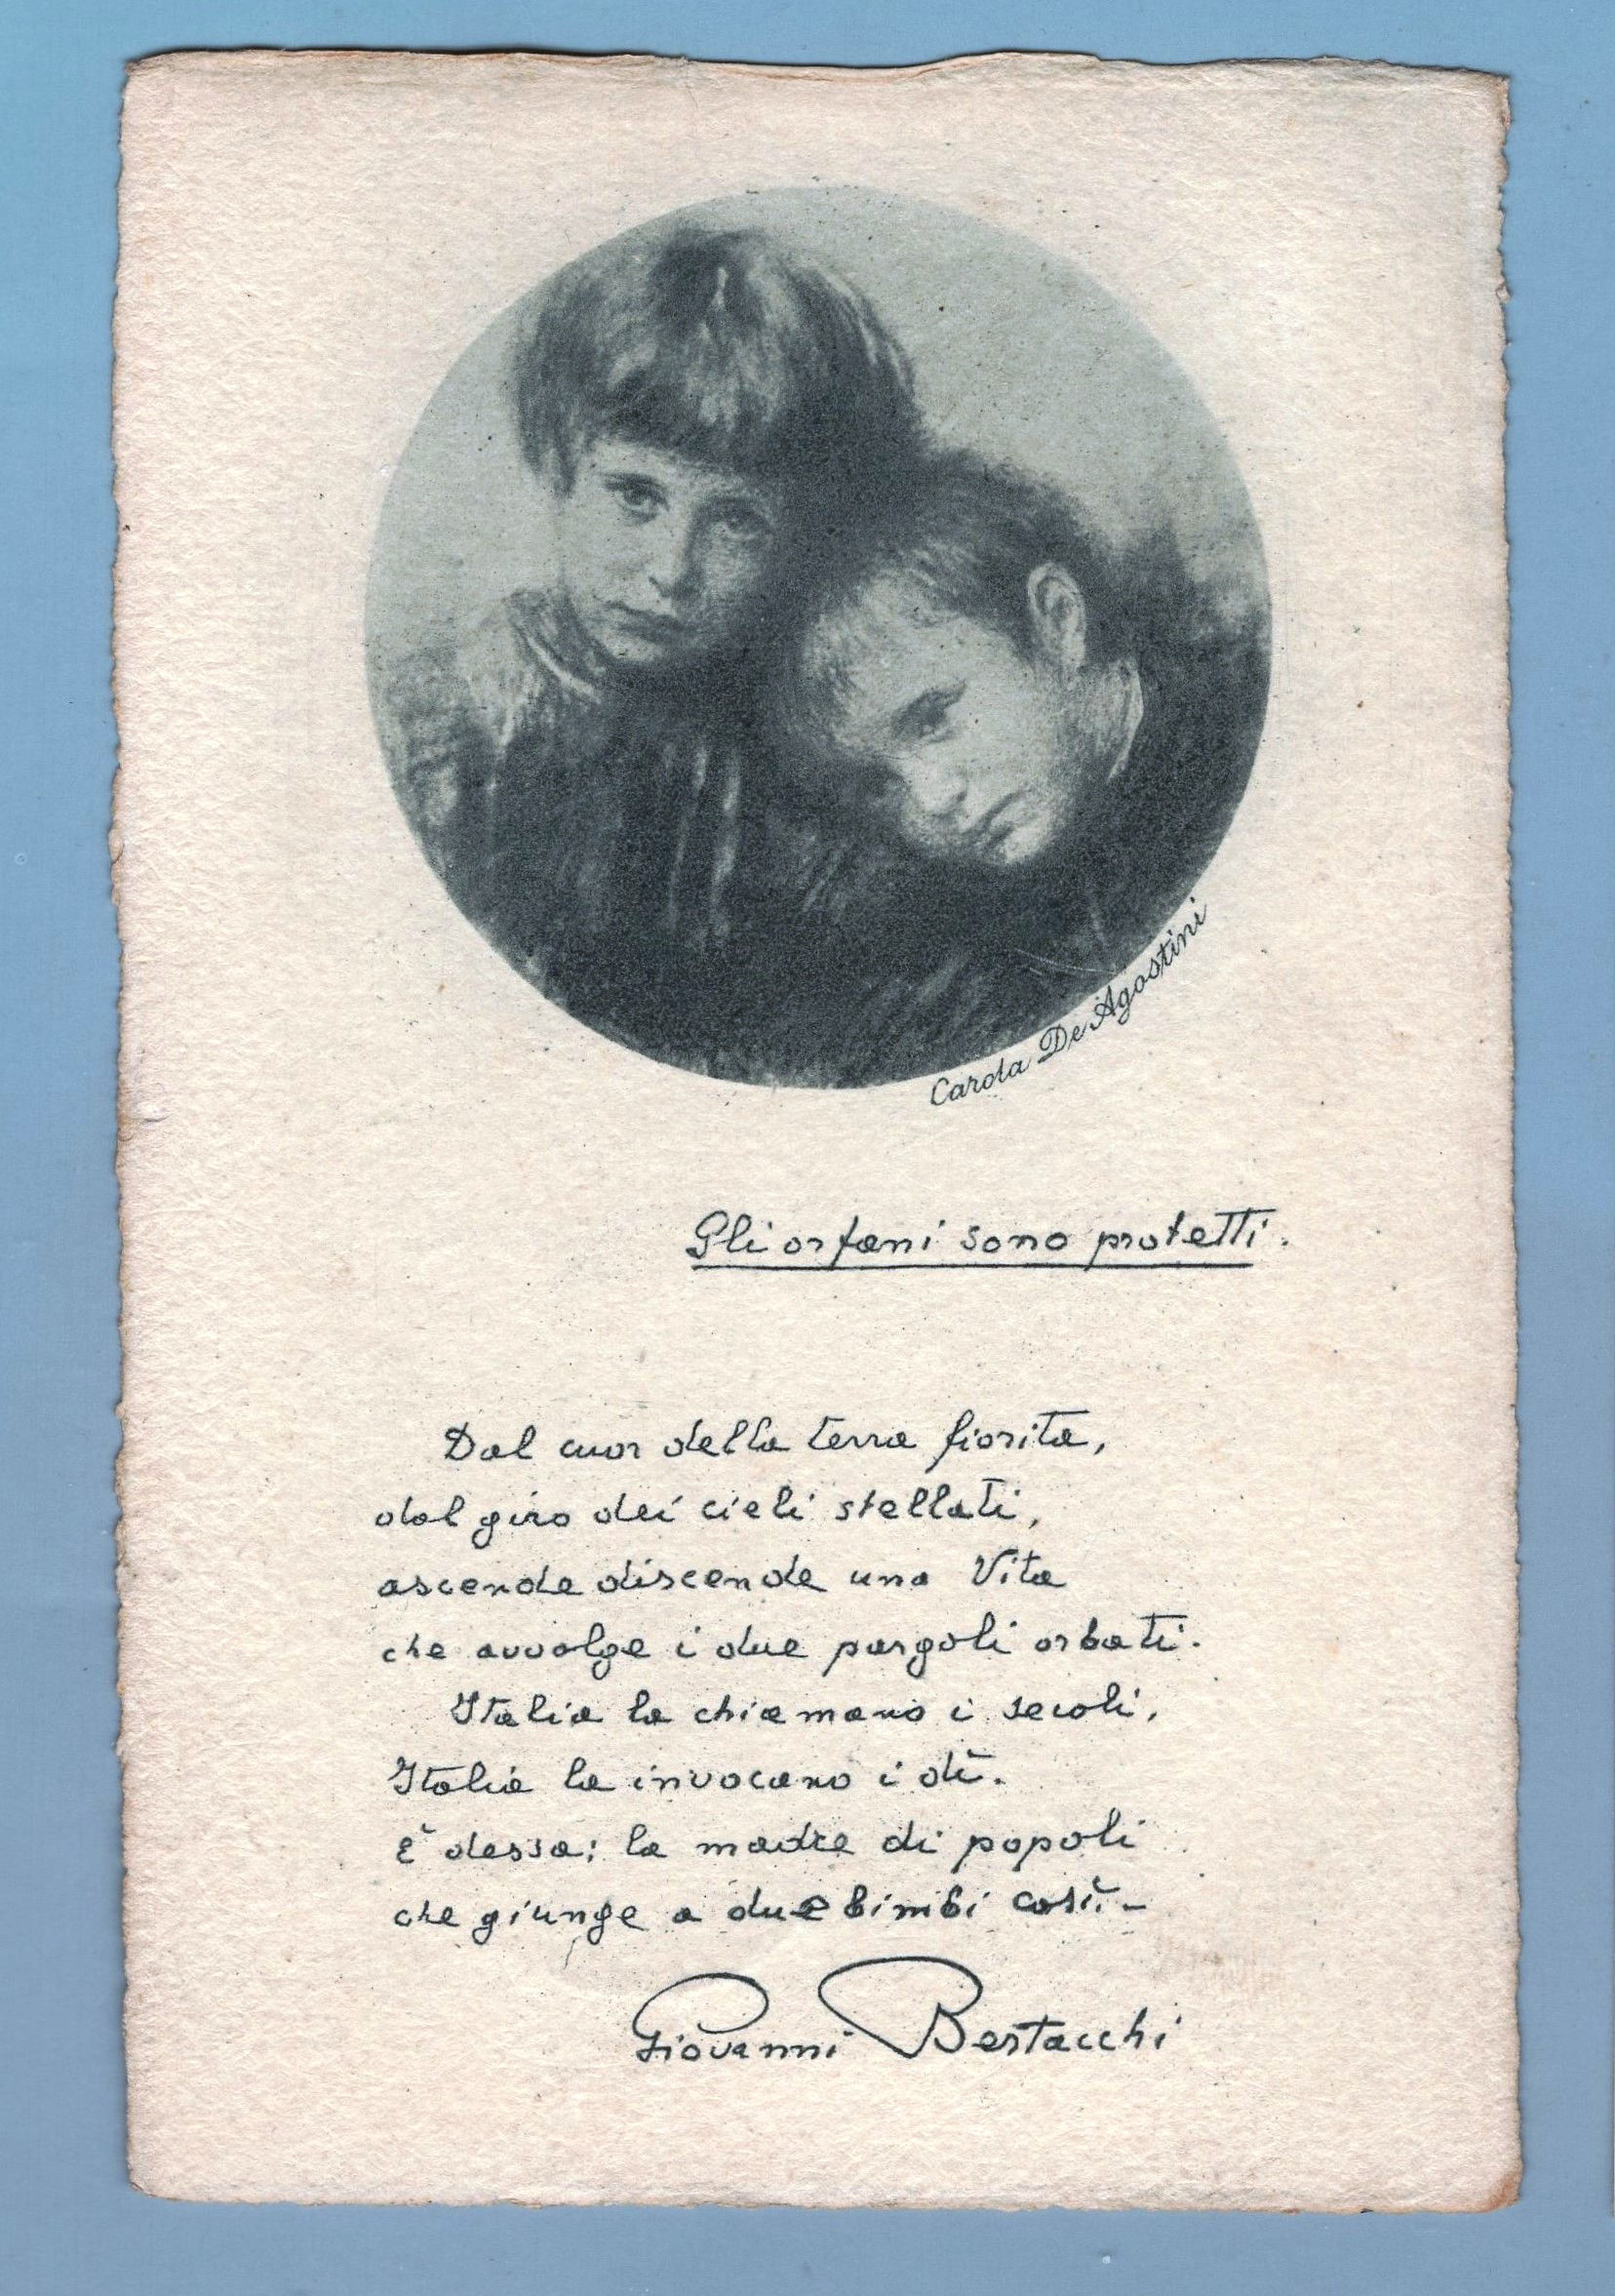 Carola De Agostini
Gli orfani sono protetti.
Dal cuor della terra fiorita,
dal giro dei cieli stellati,
ascende discende una Vita
che avvolge i due pargoli orbati.
Italia la chiamano i secoli,
Italia la invocano i dì.
È dessa: la madre di popoli
che giunge a due bimbi così. -
Giovanni Bertacchi